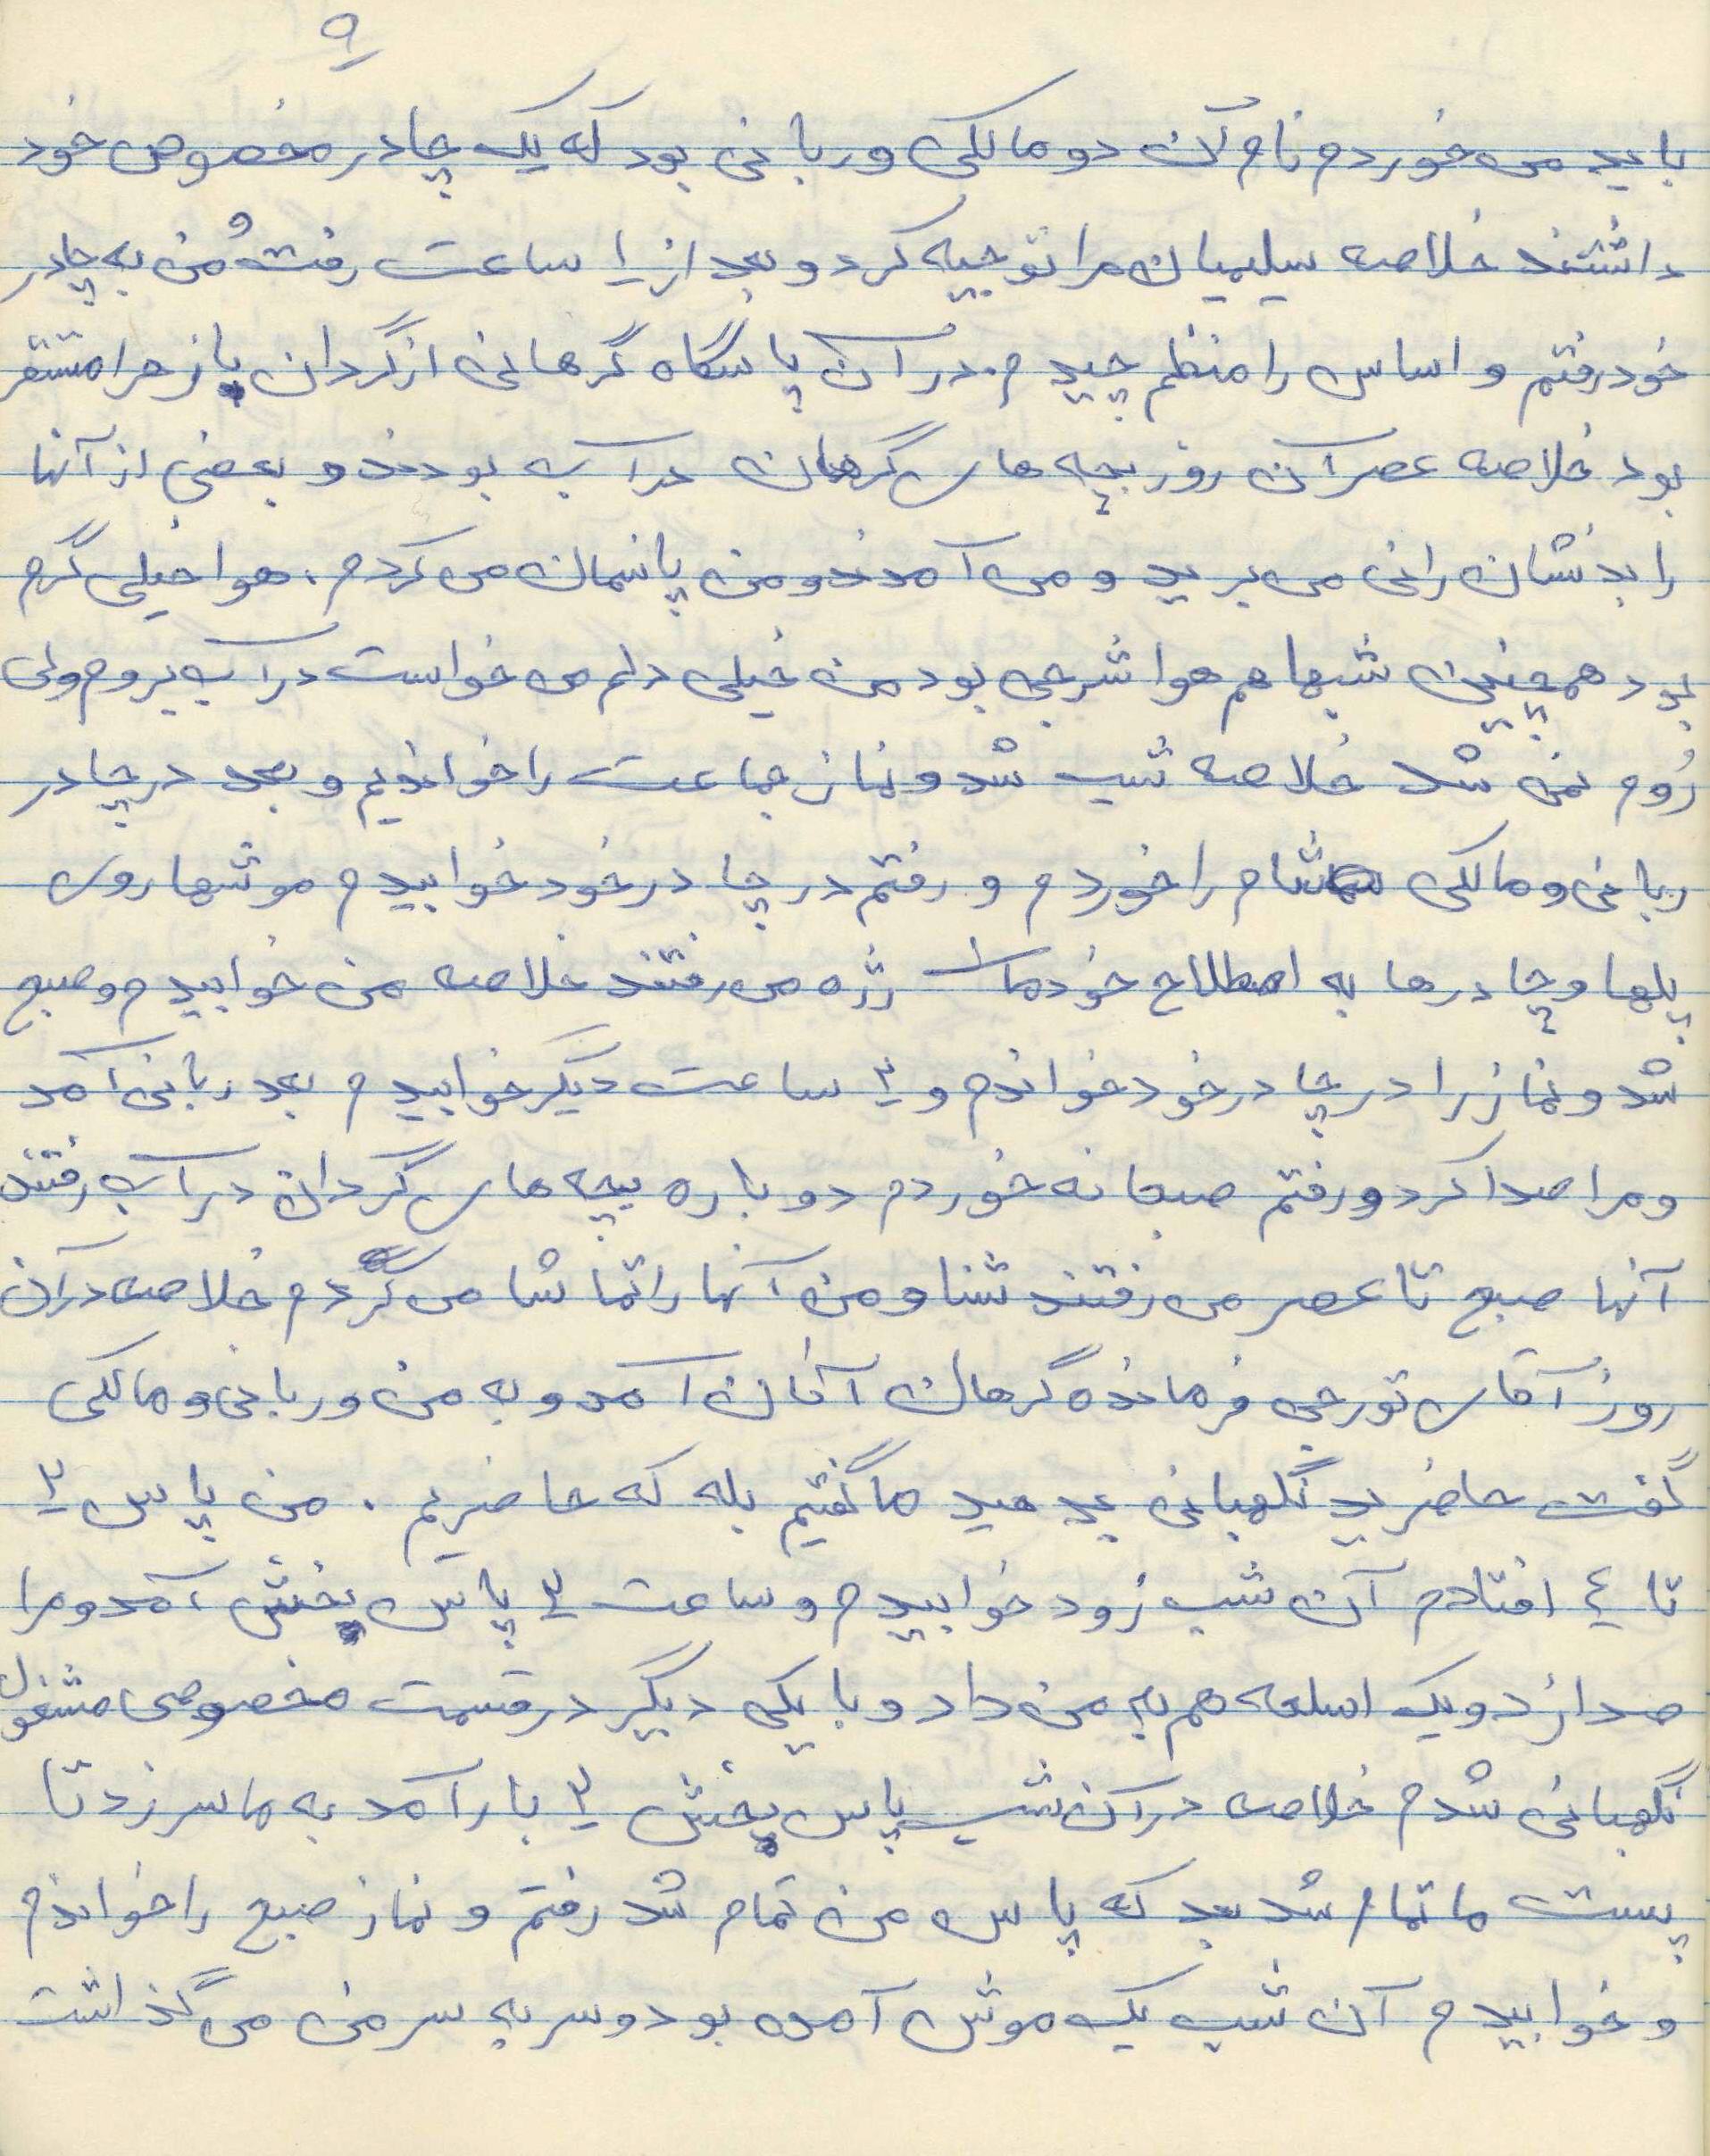 ۹
باید می خوردم نام آن دو مالکی و ربانی بود که یک چادر مخصوص خود
داشتند خلاصه سلیمیان مرا توجیه کرد و بعد از ۱ ساعت رفت و من به چادر
خود رفتم و اساس را منظم چیدم. در آن پاسگاه گرهانی از گردان یا زهرا مستقر
بود خلاصه عصر آن روز بچه های گرهان در آب بودند و بعضی از آنها
را بدنشان رانی می برید و می آمدند و من پانسمان می کردم، هوا خیلی گرم
بود همچنین شبها هم هوا شرجی بود من خیلی دلم می خواست در آب بروم ولی
رُوم نمی شد خلاصه شب شد و نماز جماعت را خواندیم و بعد در چادر
ربانی و مالکی شام را خوردم و رفتم در چادر خود خوابیدم موشها روی
پلها و چادرها به اصطلاح خودمان رژه می رفتند خلاصه من خوابیدم و صبح
شد و نماز را در چادر خود خواندم و ۲ ساعت دیگر خوابیدم بعد ربانی آمد
و مرا صدا کرد و رفتم صبحانه خوردم دوباره بچه های گردان در آب رفتند
آنها صبح تا عصر می رفتند شنا و من آنها را تماشا می کردم خلاصه در آن
روز آقای تورجی فرمانده گرهان آنان آمد و به من و ربانی و مالکی
گفت حاضرید نگهبانی بدهید ما گفتیم بله که حاضریم. من پاس ۲
تا ٤ افتادم آن شب زود خوابیدم و ساعت ۲ پاس بخش آمد و مرا
صدا زد و یک اسلحه هم به من داد و با یکی دیگر در قسمت مخصوصی مشغول
نگهبانی شدم خلاصه در آن شب پاس بخش ۲ بار آمد به ما سر زد تا
پست ما تمام شد بعد که پاس من تمام شد رفتم و نماز صبح را خواندم
و خوابیدم آن شب یک موش آمده بود و سر به سر من می گذاشت